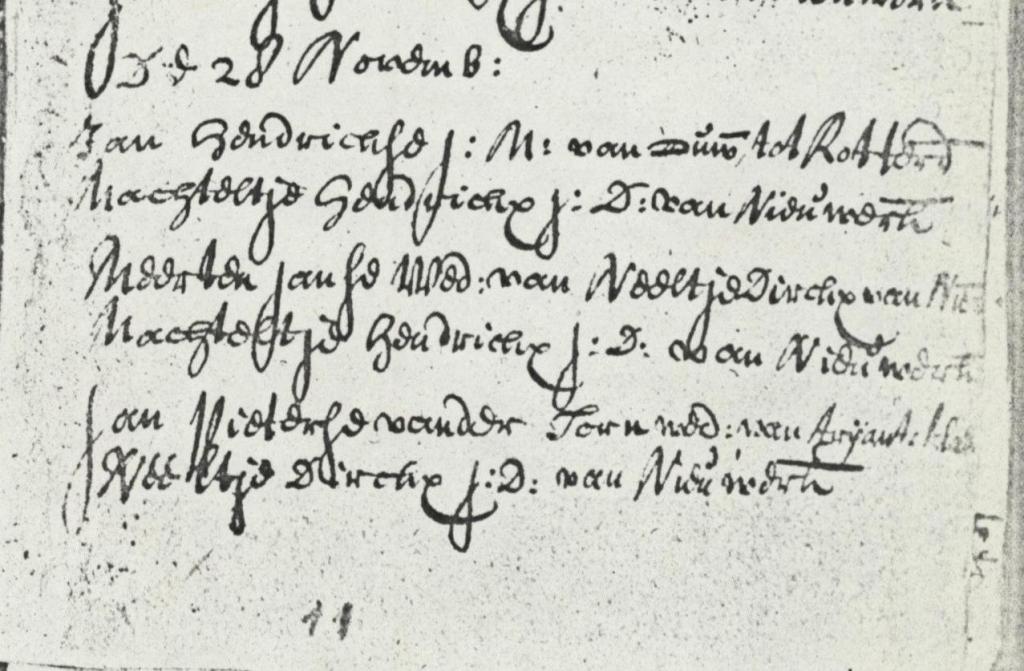 Dē 28 Novemb:
Jan Hendrickse j: M: van tot Rotterd
Machteltje Hendrickx j: D: van Nieuwerk
Meerten Janse Wed: van Neeltje Dirckx van
Machteltje Hendrickx j: D: van Nieuwerk
Jan Pieterse vander Torn wed: van Aryant:
Neeltje Dirckx j: D: van Nieuwerk
11